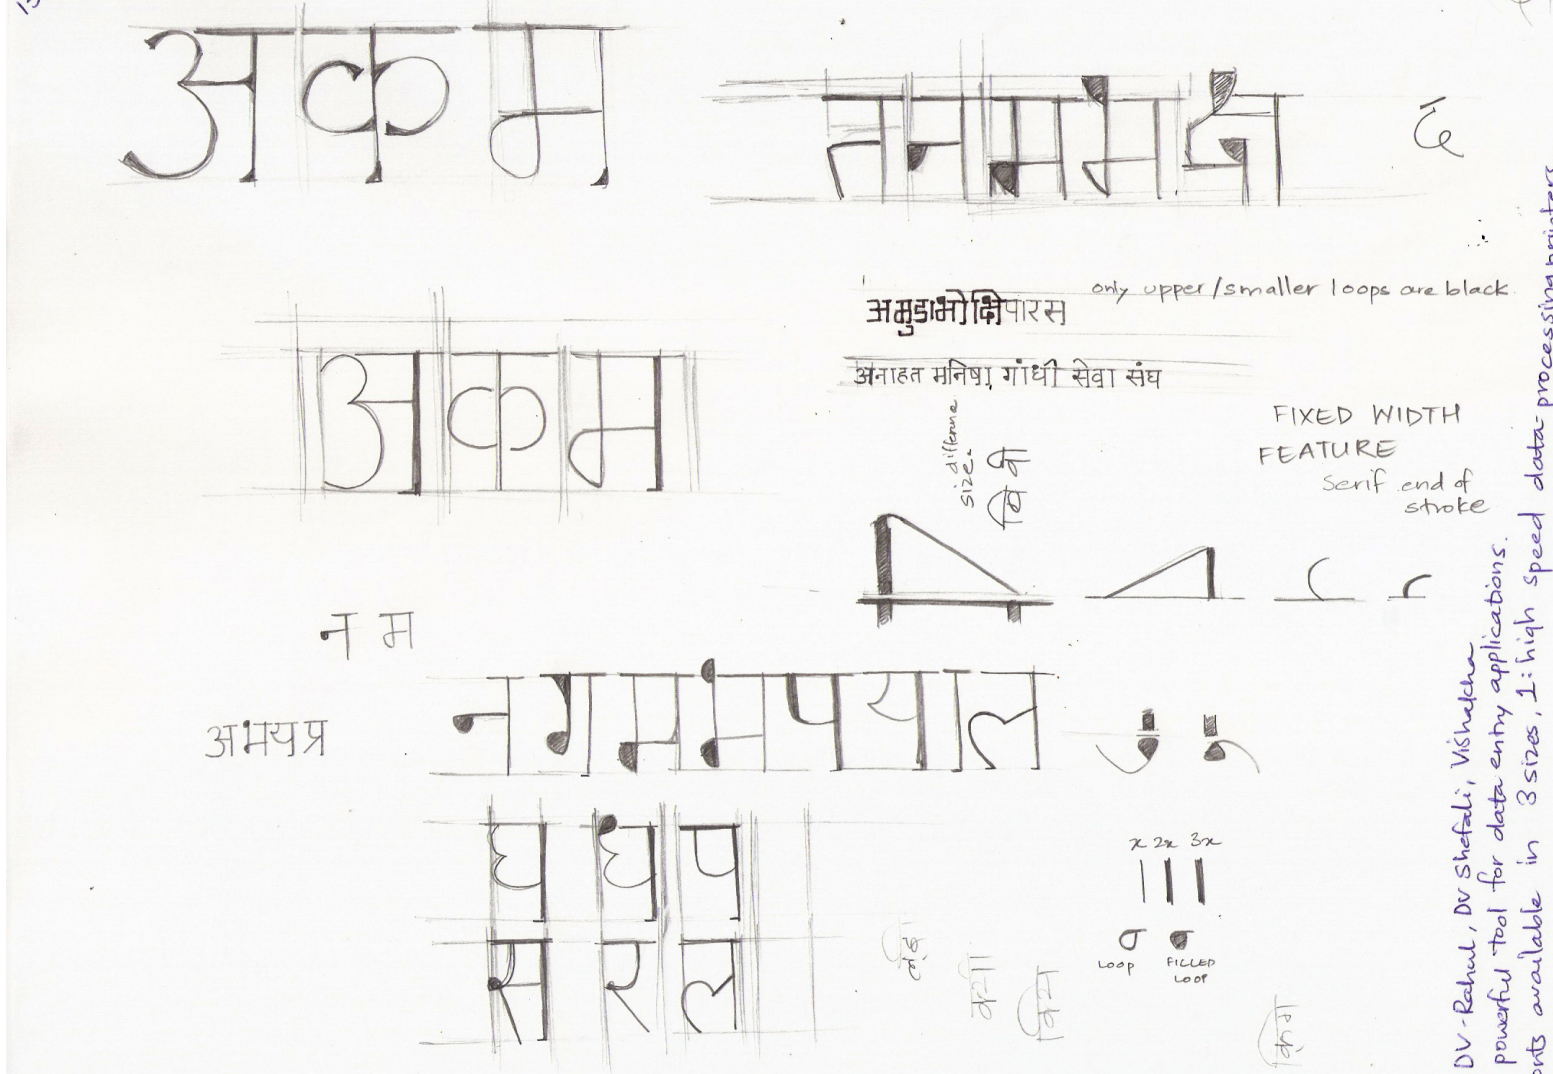 अ क म
त न म में द्र
द
only upper/smaller loops are black
अमुडाभोक्षिपारस
अनाहत मनिषा, गांधी सेवा संघ
size difference
वि वी
FIXED WIDTH
FEATURE
serif end of
stroke
अ क म
न म
न ग म मं प य त
अभयप्र
x 2x 3x
घ घ प
LOOP
FILLED
LOOP
स र त
DV-Rahul, DV Shefali, Vishakha
powerful tool for data entry applications.
available in 3 sizes, 1: high speed data-processing printers